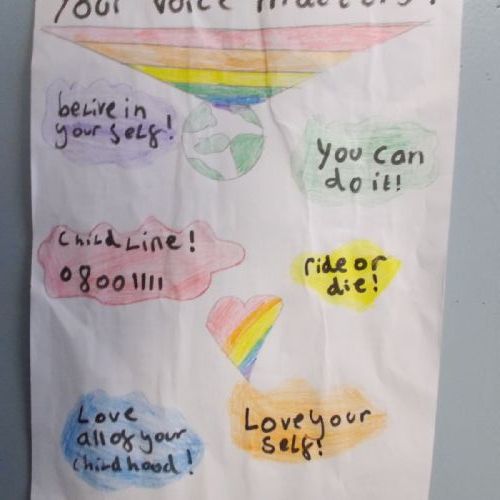 Your Voice Matters!
beLive in
your self!
You can
do it!
Child Line!
08001111
ride or
die!
Love
all of your
childhood!
Love your
self!